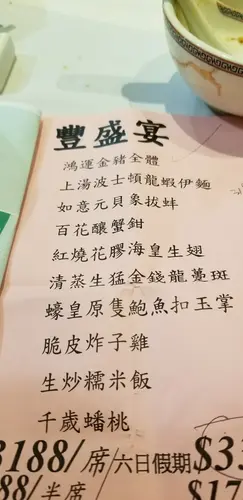 豐盛宴
鴻運金豬全體
上湯波士頓龍蝦伊麵
如意元貝象拔蚌
百花釀蟹鉗
紅燒花膠海皇生翅
清蒸生猛金錢龍躉斑
蠔皇原隻鮑魚扣玉掌
脆皮炸子雞
生炒糯米飯
千歲蟠桃
3188/席/六日假期$3
88/半席 $17